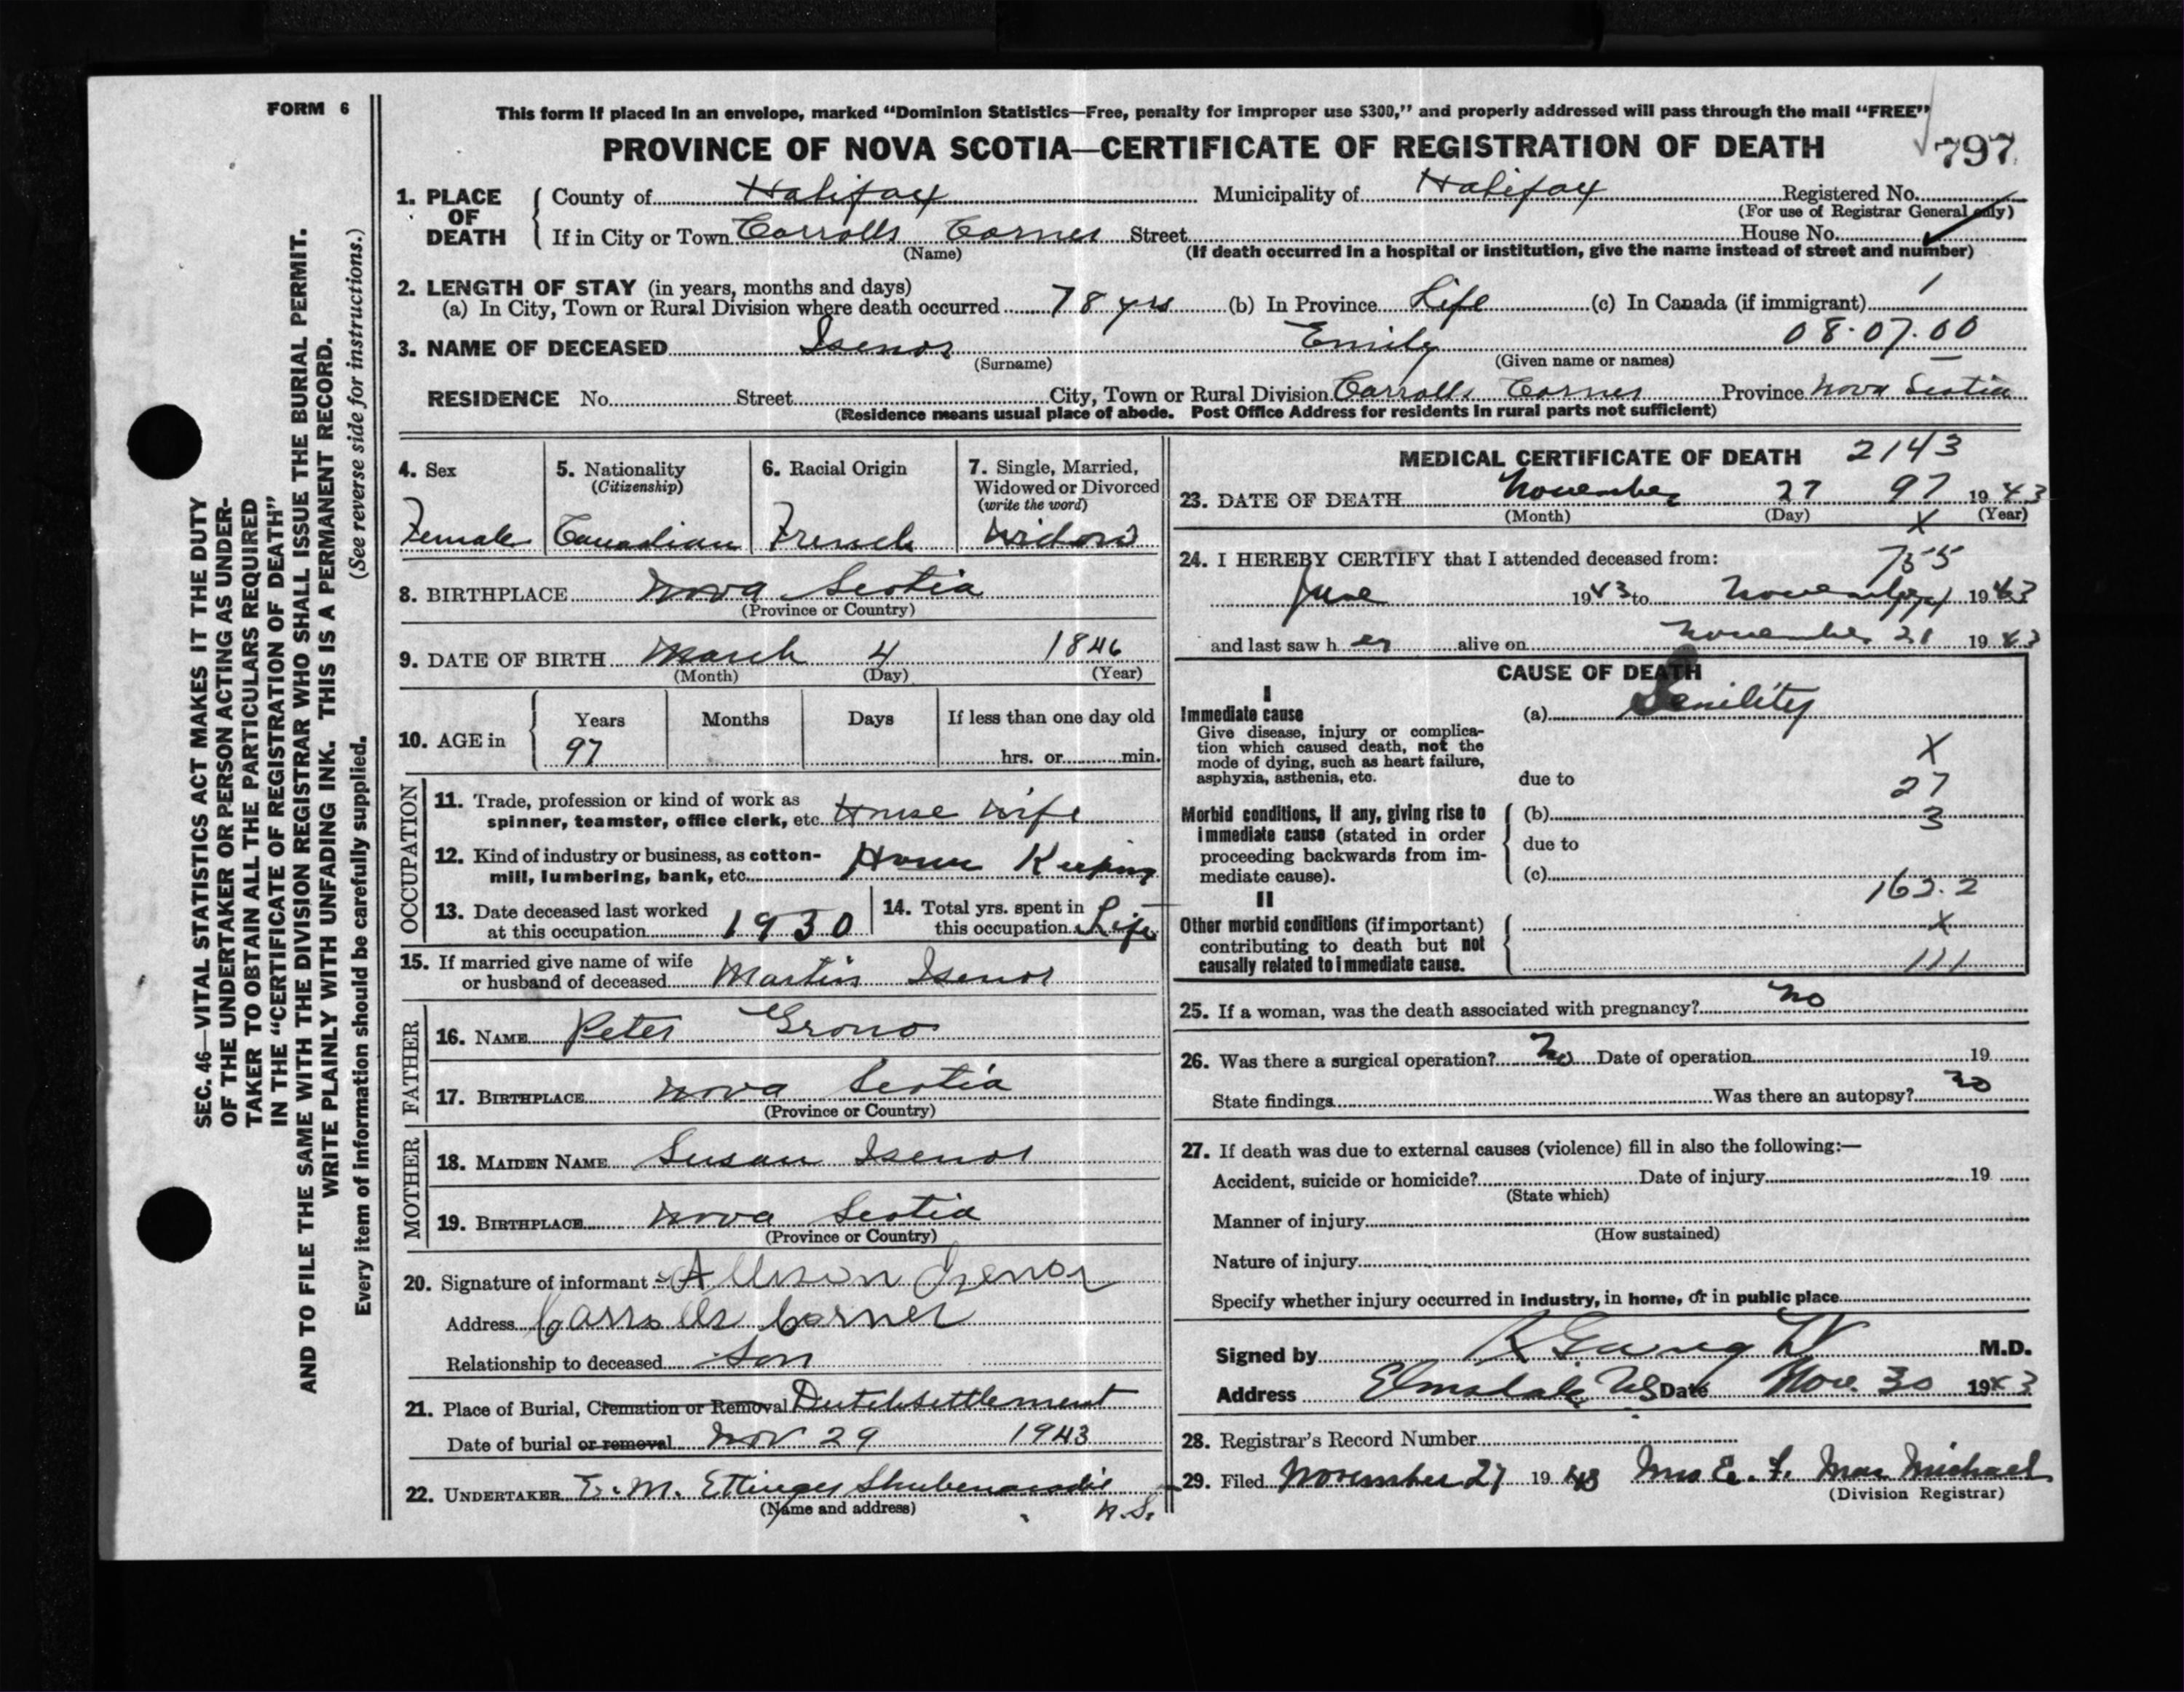 FORM 6
This form if placed in an envelope, marked "Dominion Statistics—Free, penalty for improper use $300," and properly addressed will pass through the mail "FREE"
PROVINCE OF NOVA SCOTIA—CERTIFICATE OF REGISTRATION OF DEATH 797
1. PLACE OF DEATH { County of Halifax Municipality of Halifax Registered No.
(For use of Registrar General only)
If in City or Town Carrolls Corner Street House No.
(Name) (If death occurred in a hospital or institution, give the name instead of street and number)
2. LENGTH OF STAY (in years, months and days)
(a) In City, Town or Rural Division where death occurred 78 yrs (b) In Province Life (c) In Canada (if immigrant)
3. NAME OF DECEASED Isenor Emily 08.07.00
(Surname) (Given name or names)
RESIDENCE No. Street City, Town or Rural Division Carrolls Corner Province Nova Scotia
(Residence means usual place of abode. Post Office Address for residents in rural parts not sufficient)
4. Sex Female
5. Nationality (Citizenship) Canadian
6. Racial Origin French
7. Single, Married, Widowed or Divorced (write the word) Widow
8. BIRTHPLACE Nova Scotia
(Province or Country)
9. DATE OF BIRTH March 4 1846
(Month) (Day) (Year)
10. AGE in { Years Months Days If less than one day old
97 hrs. or min.
OCCUPATION
11. Trade, profession or kind of work as
spinner, teamster, office clerk, etc. House Wife
12. Kind of industry or business, as cotton-
mill, lumbering, bank, etc. House Keeping
13. Date deceased last worked
at this occupation 1930
14. Total yrs. spent in
this occupation Life
15. If married give name of wife
or husband of deceased Martin Isenor
FATHER
16. NAME Peter Grono
17. BIRTHPLACE Nova Scotia
(Province or Country)
MOTHER
18. MAIDEN NAME Susan Isenor
19. BIRTHPLACE Nova Scotia
(Province or Country)
20. Signature of informant Allison Isenor
Address Carrolls Corner
Relationship to deceased Son
21. Place of Burial, Cremation or Removal Dutchsettlement
Date of burial or removal Nov 29 1943
22. UNDERTAKER E. M. Ettinger Shubenacadie
(Name and address) N.S.
MEDICAL CERTIFICATE OF DEATH 2143
23. DATE OF DEATH November 27 97 1943
(Month) (Day) X (Year)
24. I HEREBY CERTIFY that I attended deceased from: 755
June 1943 to November 1943
and last saw h er alive on November 21 1943
CAUSE OF DEATH
I
Immediate cause
Give disease, injury or complica-
tion which caused death, not the
mode of dying, such as heart failure,
asphyxia, asthenia, etc.
(a) Senility
X
due to 27
Morbid conditions, if any, giving rise to
immediate cause (stated in order
proceeding backwards from im-
mediate cause).
(b) 3
due to
(c)
162.2
II
Other morbid conditions (if important)
contributing to death but not
causally related to immediate cause.
X
111
25. If a woman, was the death associated with pregnancy? No
26. Was there a surgical operation? No Date of operation 19
State findings Was there an autopsy? no
27. If death was due to external causes (violence) fill in also the following:—
Accident, suicide or homicide? Date of injury 19
(State which)
Manner of injury
(How sustained)
Nature of injury
Specify whether injury occurred in industry, in home, or in public place
Signed by M.D.
Address Elmsdale NS Date Nov. 30 1943
28. Registrar's Record Number
29. Filed November 27 1943 Mrs E. F. MacMichael
(Division Registrar)
SEC. 46—VITAL STATISTICS ACT MAKES IT THE DUTY
OF THE UNDERTAKER OR PERSON ACTING AS UNDER-
TAKER TO OBTAIN ALL THE PARTICULARS REQUIRED
IN THE "CERTIFICATE OF REGISTRATION OF DEATH"
AND TO FILE THE SAME WITH THE DIVISION REGISTRAR WHO SHALL ISSUE THE BURIAL PERMIT.
WRITE PLAINLY WITH UNFADING INK. THIS IS A PERMANENT RECORD.
Every item of information should be carefully supplied. (See reverse side for instructions.)